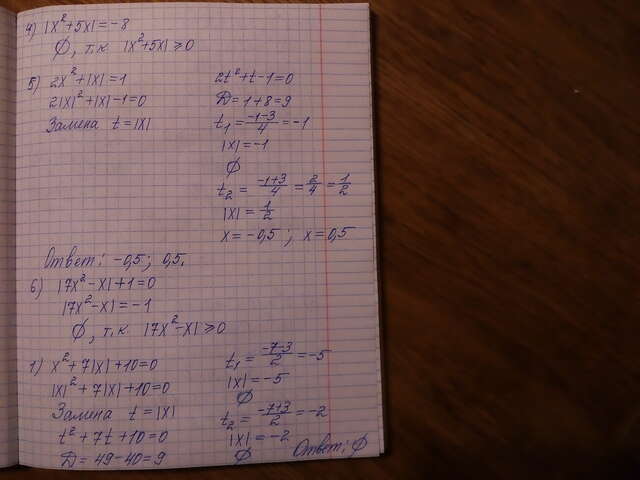 4) |x²+5x|=-8
∅, т.к |x²+5x|≥0
5) 2x²+|x|=1
2|x|²+|x|-1=0
Замена t=|x|
2t²+t-1=0
Д=1+8=9
t₁=(-1-3)/4=-1
|x|=-1
∅
t₂=(-1+3)/4=2/4=1/2
|x|=1/2
x=-0,5; x=0,5
Ответ: -0,5; 0,5.
6) |7x²-x|+1=0
|7x²-x|=-1
∅, т.к |7x²-x|≥0
1) x²+7|x|+10=0
|x|²+7|x|+10=0
Замена t=|x|
t²+7t+10=0
Д=49-40=9
t₁=(-7-3)/2=-5
|x|=-5
∅
t₂=(-7+3)/2=-2
|x|=-2
∅
Ответ: ∅